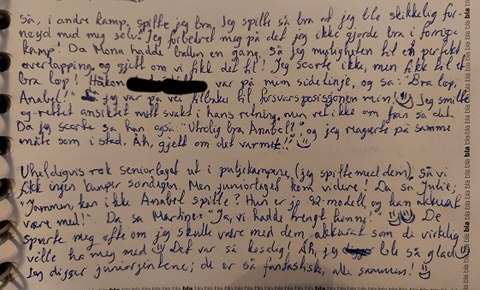 Så, i andre kamp, spilte jeg bra. Jeg spilte så bra at jeg ble skikkelig for-
nøyd med meg selv. Jeg forbedret meg på det jeg ikke gjorde bra i forrige
kamp! Da Mona hadde ballen en gang, så jeg muligheten til en perfekt
overlapping, og gjett om vi fikk det til! Jeg scorte ikke, men fikk til et
bra løp! Håkon var på min sidelinje, og sa: "Bra løp,
Anabel!" jeg var på vei tilbake til forsvarsposisjonen min. Jeg smilte
og rettet ansiktet mitt svakt i hans retning, men vet ikke om han så det.
Da jeg scorte sa han også: "Utrolig bra Anabel!" og jeg reagerte på samme
måte som i stad. Åh, gjett om det varmet!
Uheldigvis røk seniorlaget ut i puljekampene, (jeg spilte med dem) så vi
fikk ingen kamper søndagen. Men juniorlaget kom videre! Da sa Julie:
"Jammen, kan ikke Anabel spille? Hun er jo 92-modell, og kan akkurat
være med!" Da sa Martine: "Ja, vi hadde trengt henne!" De
spurte meg ofte om jeg skulle være med dem, akkurat som de virkelig
ville ha meg med. Det var så koselig! Åh, jeg ble så glad
Jeg digger juniorjentene; de er så fantastiske, alle sammen!
bla bla bla bla bla bla bla bla bla